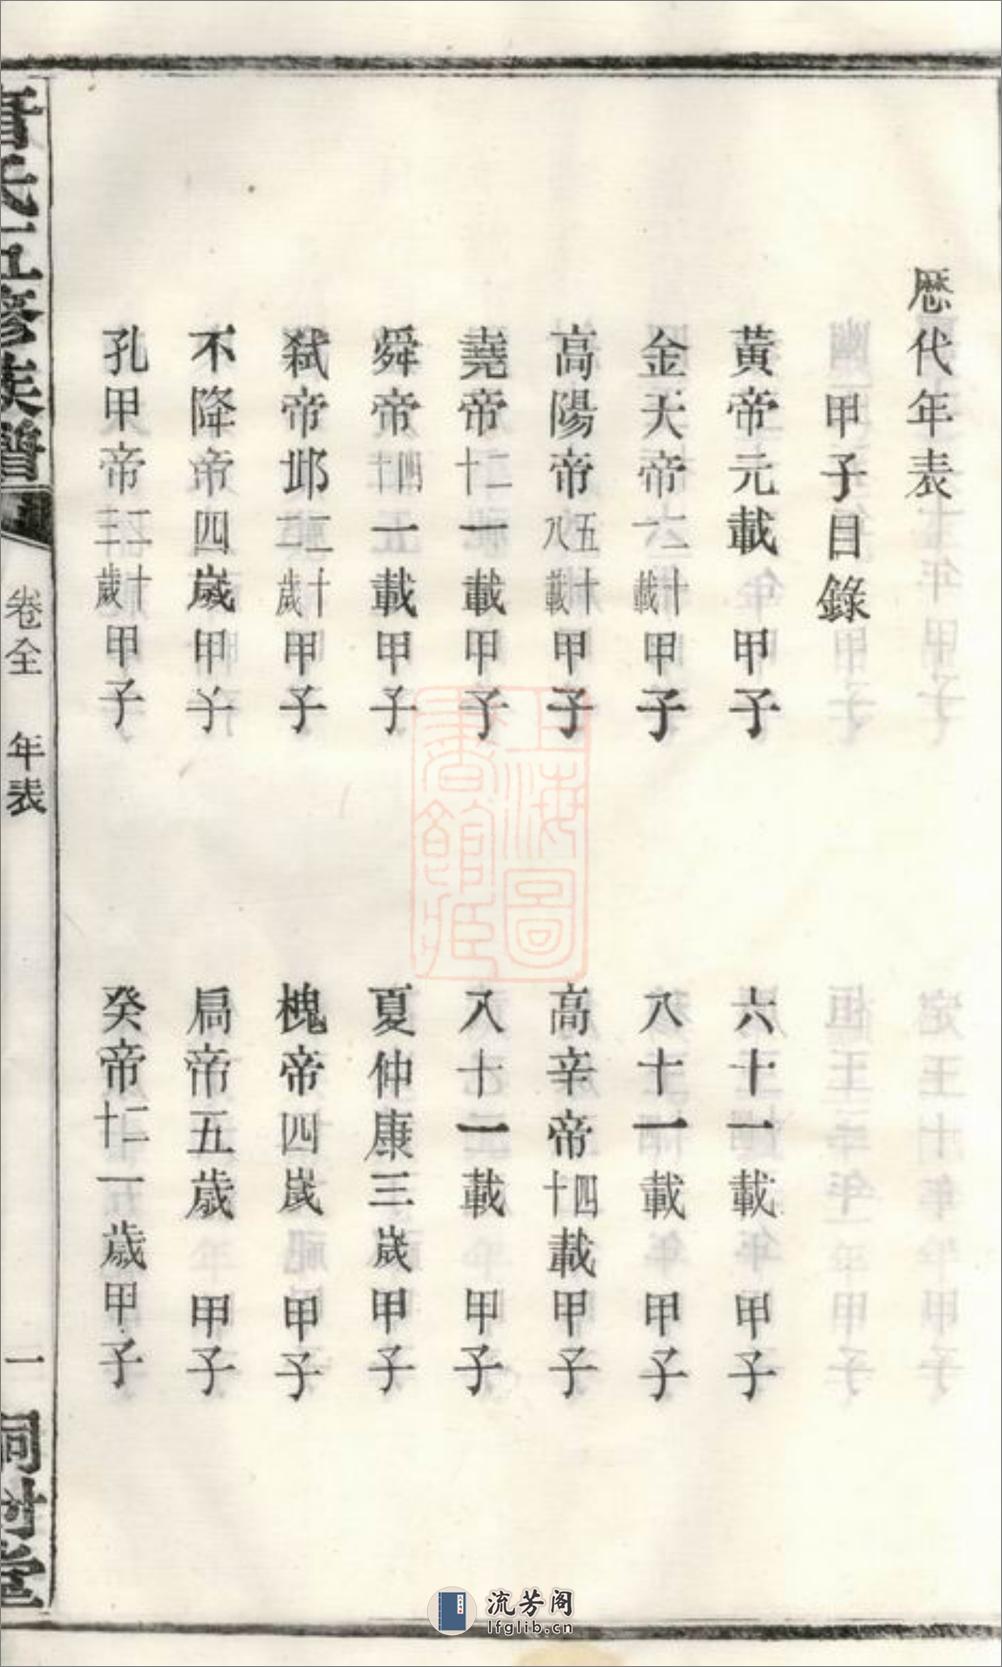 歷代年表
甲子目錄
黃帝元載甲子
六十一載甲子
金天帝二十一載甲子
八十一載甲子
高陽帝五十八載甲子
高辛帝四十載甲子
堯帝二十一載甲子
八十一載甲子
舜帝四十一載甲子
夏仲康三歲甲子
弒帝邶二十二歲甲子
槐帝四歲甲子
不降帝四歲甲子
扃帝五歲甲子
孔甲帝二十三歲甲子
癸帝二十一歲甲子
氏五修族譜
卷全
年表
一
堂
上海圖書館藏
流芳阁
lfglib.cn